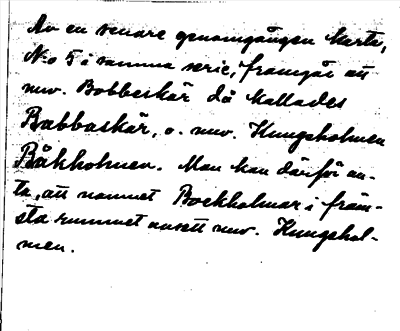 Av en senare genomgången karta,
No 5 i samma serie, framgår att
nuv. Bobbeskär då kallades
Babbaskär, o. nuv. Kungsholmen
Båkholmen. Man kan därför an-
ta, att namnet Bockholmar i främ-
sta rummet avsett nuv. Kungshol-
men.